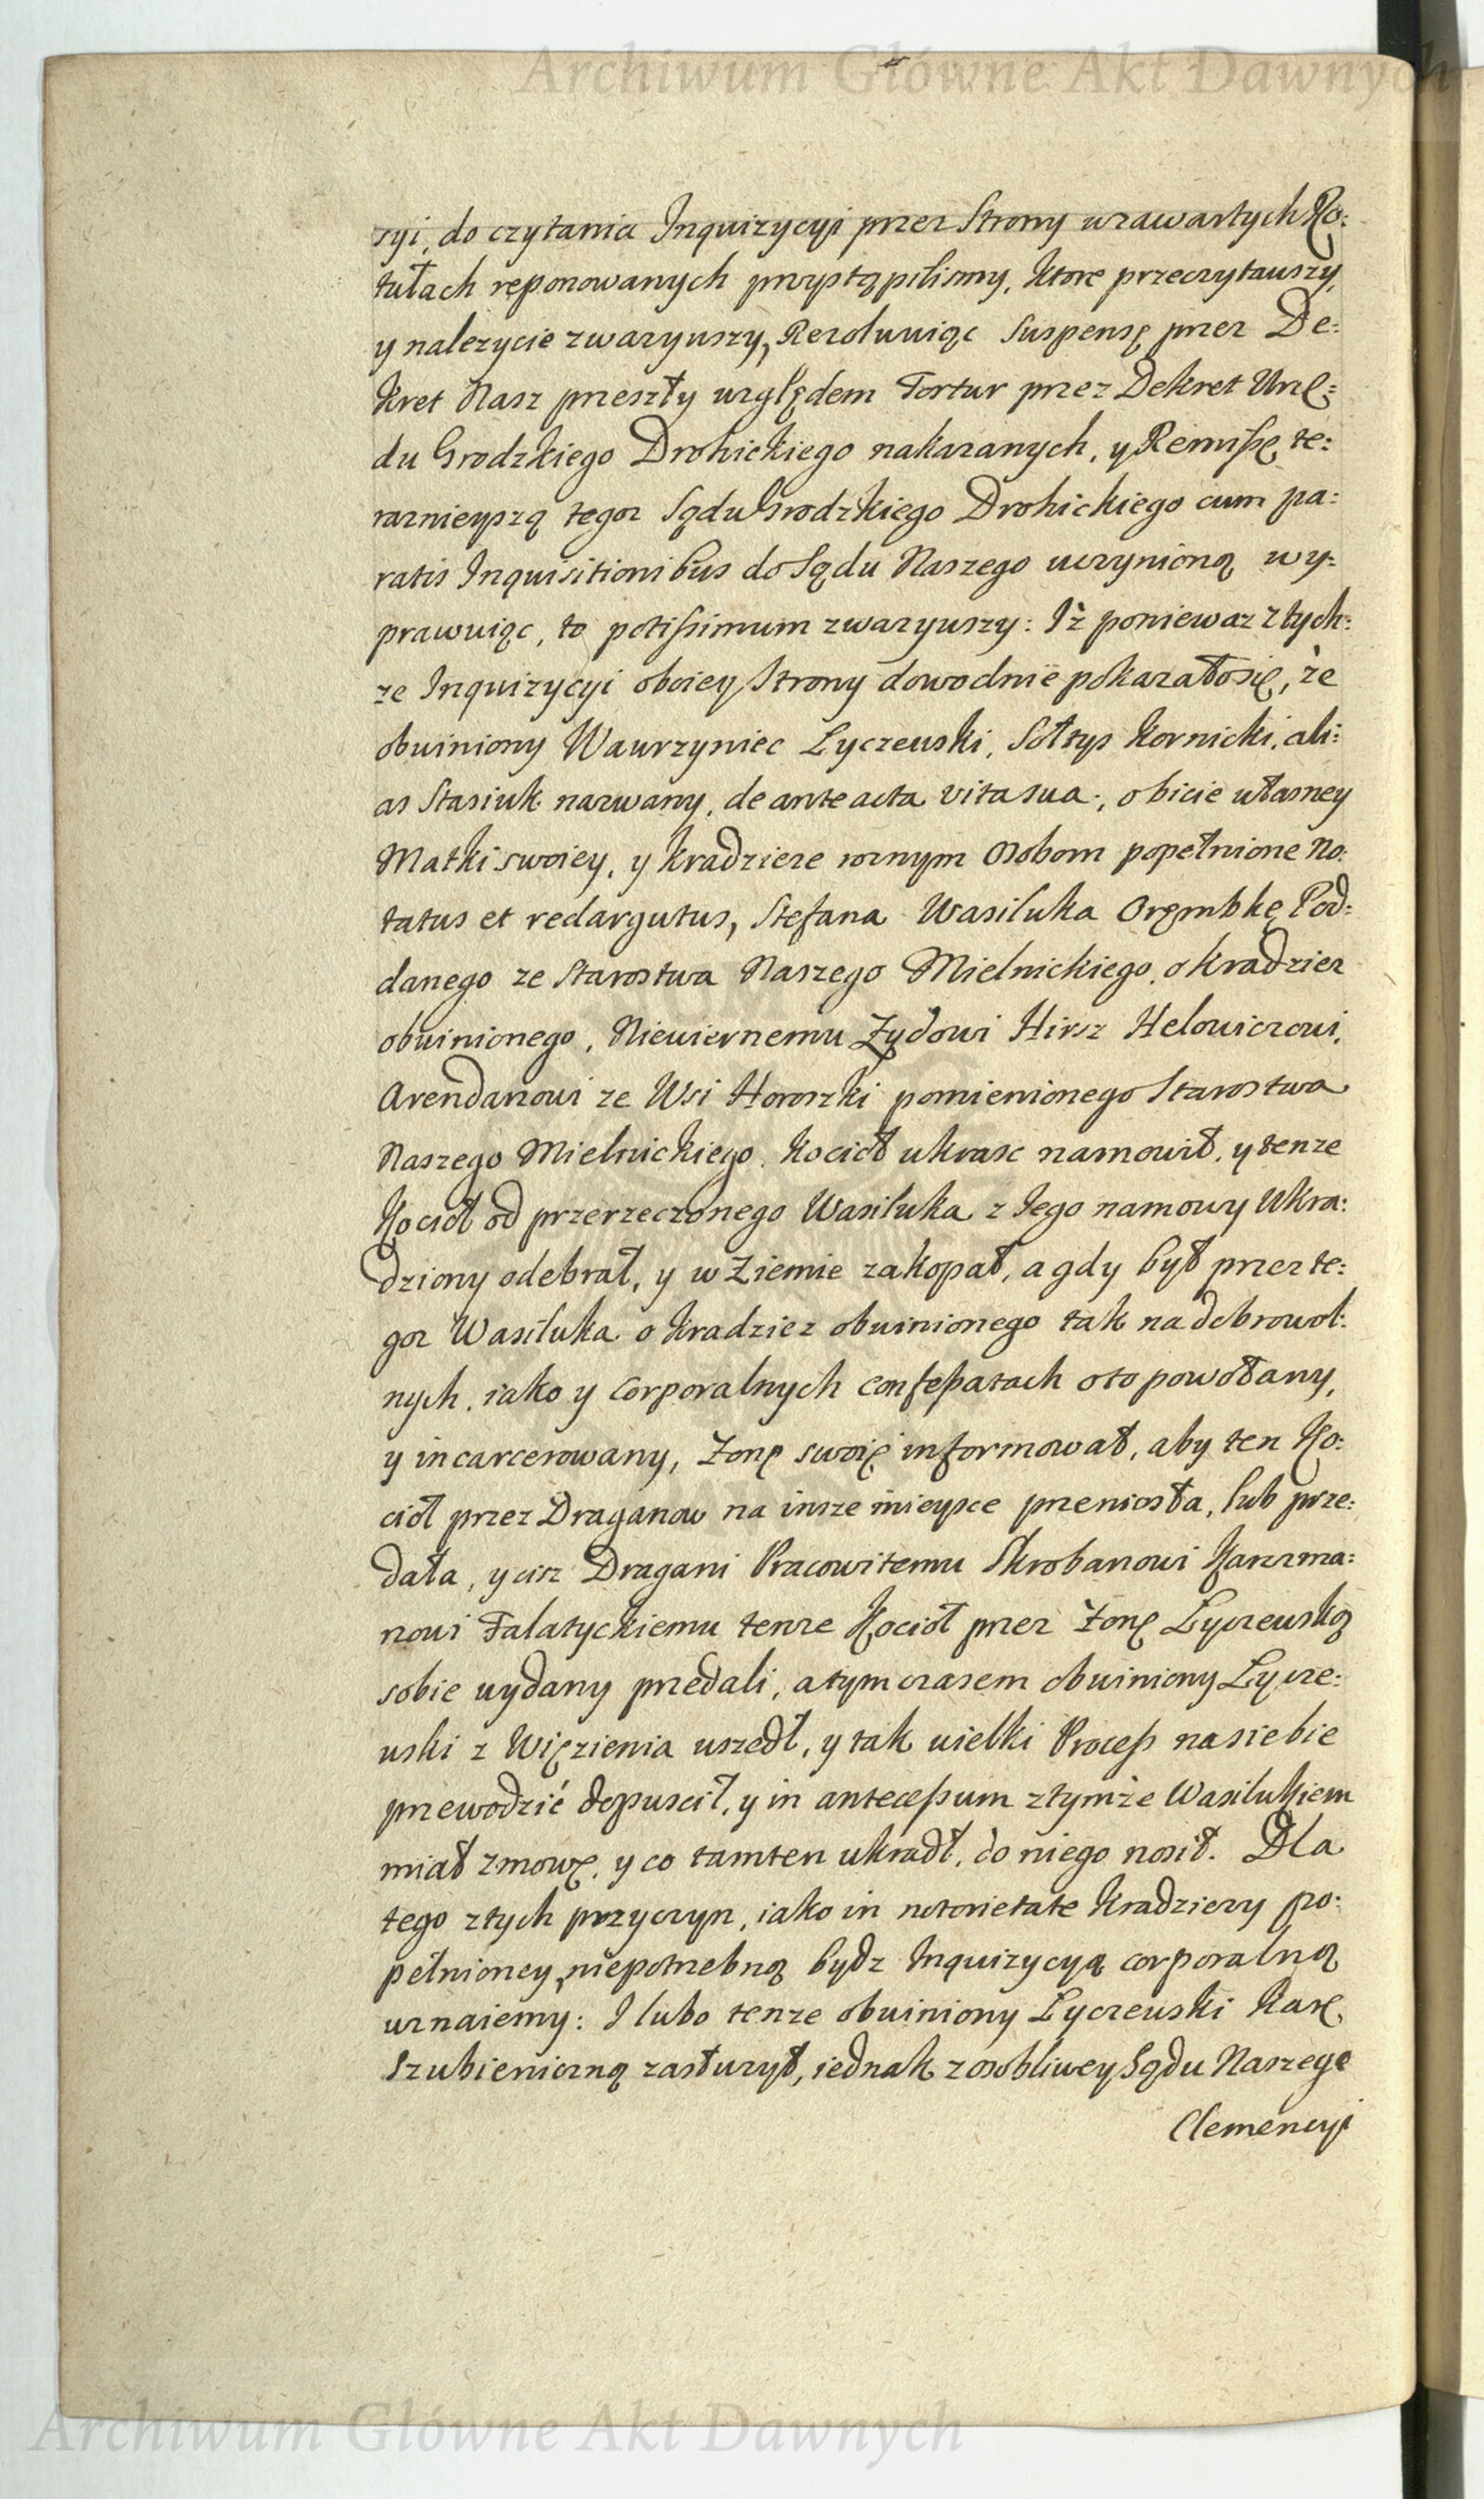 Archiwum Główne Akt Dawnych
syi, do czytania Inquizycyi przez Strony wzawartych Ro:
tułach reponowanych przystąpilismy, ktore przeczytawszy,
y nalezycie zwazywszy, Rezolwuiąc suspensę przez De:
kret Nasz przeszły względem Tortur przez Dekret Urzę:
du Grodzkiego Drohickiego nakazanych, y Remissę te:
raznieyszą tegoz Sądu Grodzkiego Drohickiego cum pa:
ratis Inquisitionibus do Sądu Naszego uczynioną wy:
prawuiąc, to potissimum zwazywszy: Iż poniewaz z tych:
ze Inquizycyi oboiey Strony dowodnie pokazałosię, że
obwiniony Wawrzyniec Lyczewski, Sołtys Kornicki, ali:
as Stasiuk nazwany, de ante acta vita sua, o bicie własney
Matki swoiey, y kradzieze roznym Osobom popełnione No:
tatus et redargutus, Stefana Wasiluka Orembkę Pod:
danego ze Starostwa Naszego Mielnickiego, o kradziez
obwinionego, Niewiernemu Zydowi Hirsz Helowiczowi,
Arendarzowi ze Wsi Horoszki pomienionego Starostwa
Naszego Mielnickiego, Kocioł ukrasc namowił, y tenze
Kocioł od przerzeczonego Wasiluka z Iego namowy Ukra:
dziony odebrał, y w Ziemie zakopał, a gdy był przez te:
goz Wasiluka o kradziez obwinionego tak na dobrowol:
nych, iako y corporalnych confessatach oto powołany,
y incarcerowany, Zonę swoię informował, aby ten Ko:
cioł przez Draganow na insze mieysce przeniosła, lub prze:
dała, y cisz Dragani Pracowitemu Skrobanowi Karczma:
rzowi Falatyckiemu tenze Kocioł przez Żonę Lyczewską
sobie wydany przedali, a tym czasem obwiniony Lycze:
wski z Więzienia uszedł, y tak wielki Process na siebie
przewodzić dopuscił, y in antecessum z tymże Wasilukiem
miał zmowę, y co tamten ukradł, do niego nosił. Dla
tego z tych przyczyn, iako in notorietate kradziezy po:
pełnioney, niepotrzebną bydz Inquizycyą corporalną
uznaiemy: I lubo tenze obwiniony Lyczewski Karę
szubieniczną zasłuzył, iednak z osobliwey Sądu Naszego
Clemencyi
Archiwum Główne Akt Dawnych